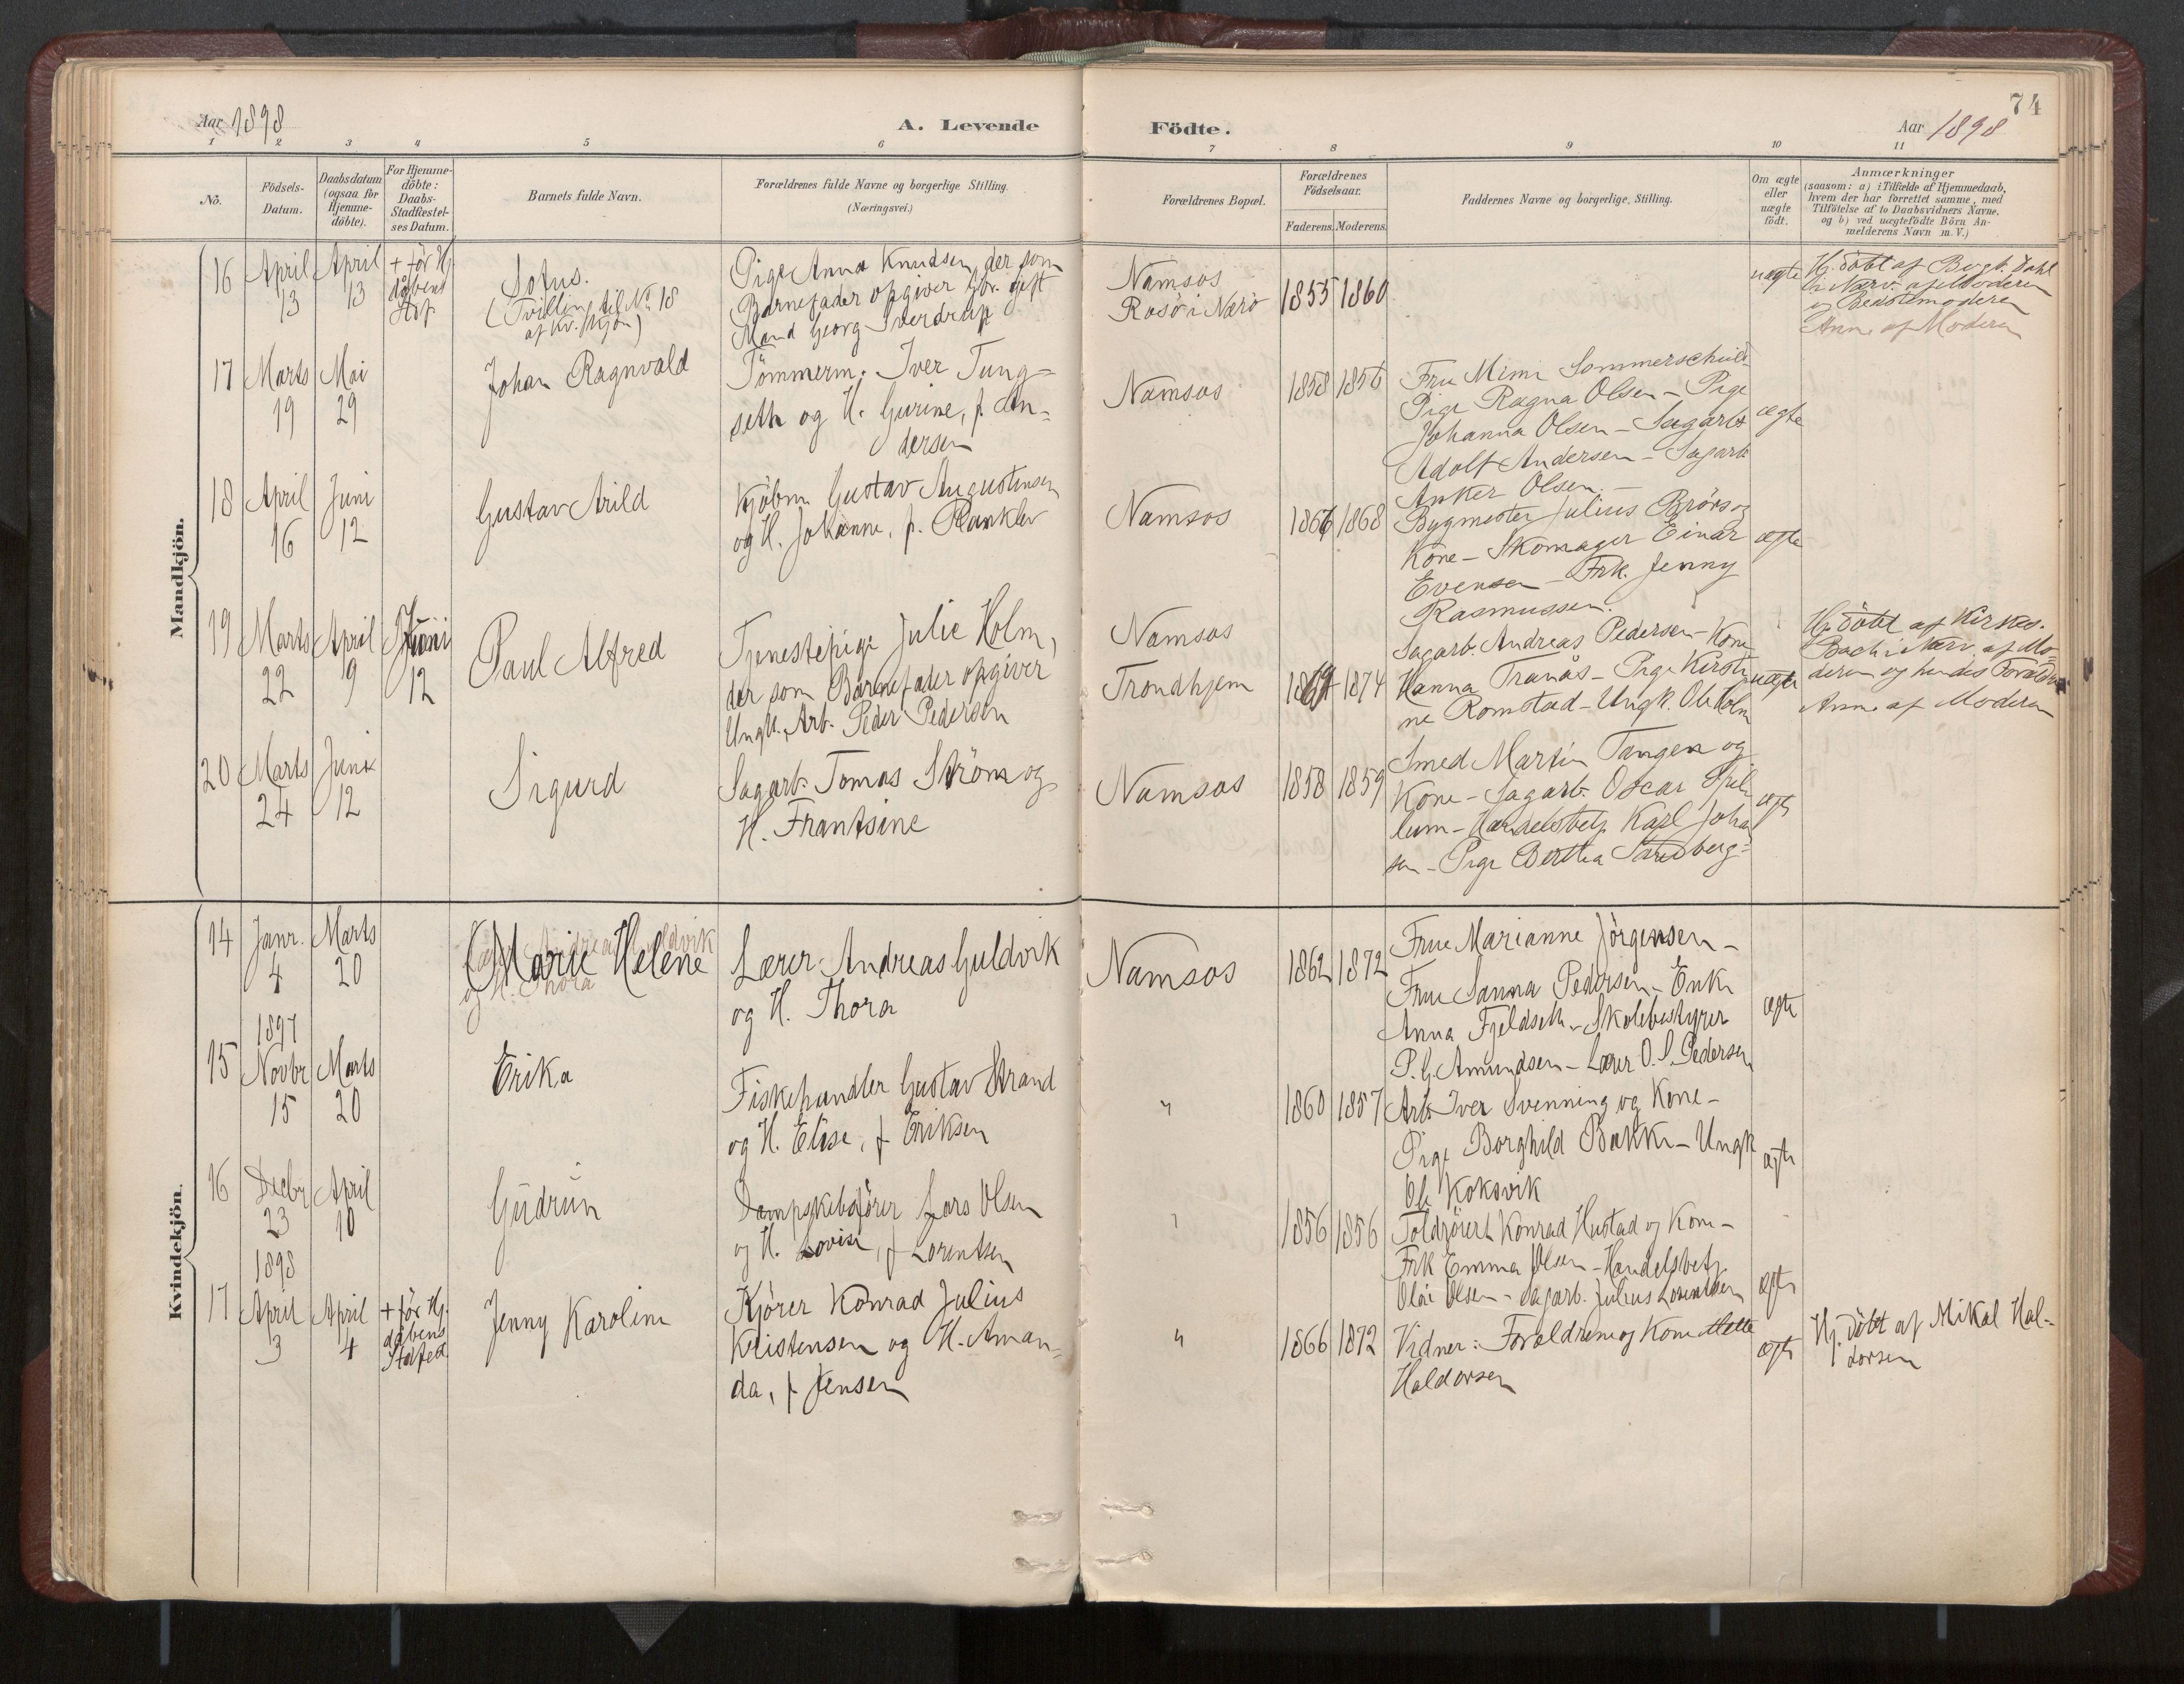 Aar 1898
A. Levende Födte.
74
Aar 1898
1 2 3 4 5 6 7 8 9 10 11
No.
Födsels-
Datum.
Daabsdatum
(ogsaa for
Hjemme-
döbte).
For Hjemme-
döbte:
Daabs-
Stadfæstel-
ses Datum.
Barnets fulde Navn.
Forældrenes fulde Navne og borgerlige Stilling.
(Næringsvei.)
Forældrenes Bopæl.
Forældrenes
Födselsaar.
Faderens. Moderens.
Faddernes Navne og borgerlige Stilling.
Om ægte
eller
uægte
födt.
Anmærkninger
(saasom: a) i Tilfælde af Hjemmedaab,
hvem der har forrettet samme, med
Tilföielse af to Daabsvidners Navne,
og b) ved uægtefödte Börn An-
melderens Navn m. V.)
Mandkjön.
16
April
13
April
13
+ för Hj.
dåbens
Stdf
Sofus.
(Tvilling til No 18
af Kv. kjön)
Pige Anna Knudsen, der som
Barnefader opgiver Gbr. gift
Mand Georg Sverdrup
Namsos
Rosö i Nærö
1855 1860
uægte
Hj. döbt af Dahl
i Nærv. af Moderen
og Bedstemoderen
Anm. af Moderen
17
Marts
19
Mai
29
Johan Ragnvald
Tömmerm. Iver Tung-
seth og H. Gurine, f. An-
dersen
Namsos
1858 1856
Fru Mimi Sommerschild
Pige Ragna Olsen - Pige
Johanna Olsen - Sagarb
Adolf Andersen - Sagarb
Anker Olsen.
ægte
18
April
16
Juni
12
Gustav Arild
Kjöbm. Gustav Augustinsen
og H. Johanne, f.
Namsos
1866 1868
Bygmester Julius Brörs og
Kone - Skomager Einar
Evensen - Frk. Jenny
Rasmussen.
ægte
19
Marts
22
April
9
Juni
12
Paul Alfred
Tjenestepige Julie Holm,
der som Barnefader opgiver
Ungk. Arb. Peder Pedersen
Namsos
Trondhjem
1874
Sagarb. Andreas Pedersen - Kone
Hanna Tranås - Pige Kirsti-
ne Romstad - Ungk. Ole Holm
uægte
Hj. döbt af Kirkes.
Bach i Nærv. af Mo-
deren og hendes Foræld
Anm. af Moderen
20
Marts
24
Juni
12
Sigurd
Sagarb. Tomas Ström og
H. Frantsine
Namsos
1858 1859
Smed Martin Tangen og
Kone - Sagarb. Oscar Spil-
lum - Handelsbetj. Karl Johan
sen - Pige Bertha Sandberg
ægte
Kvindekjön.
14
Janr.
4
Marts
20
Marie Helene
Lærer Andreas Guldvik
og H. Thora
Namsos
1862 1872
Frue Marianne Jörgensen -
Frue Sanna Pedersen - Enke
Anna Fjeldseth - Skolebestyrer
P. G. Amundsen - Lærer O. S. Pedersen
ægte
15
1897
Novbr
15
Marts
20
Erika
Fiskehandler Gustav Strand
og H. Elise, f Eriksen
"
1860 1857
Arb. Iver Svenning og Kone -
Pige Borghild Bakke - Ungk
Ole Koksvik
ægte
16
Decbr
23
April
10
Gudrun
Dampskibsförer Lars Olsen
og H. Lovise, f Lorentsen
"
1856 1856
Konrad Hustad og Kone -
Frk Emma Olsen - Handelsbetj.
Olai Olsen - Sagarb. Julius Lorentsen
ægte
17
1898
April
3
April
4
+ för Hj.
dåbens
Stdfest
Jenny Karoline
Kjörer Konrad Julius
Kristensen og H. Aman-
da, f. Jensen
"
1866 1872
Vidner: Forældrene og Kone Mette
Haldorsen
ægte
Hj. döbt af Mikal Hal-
dorsen